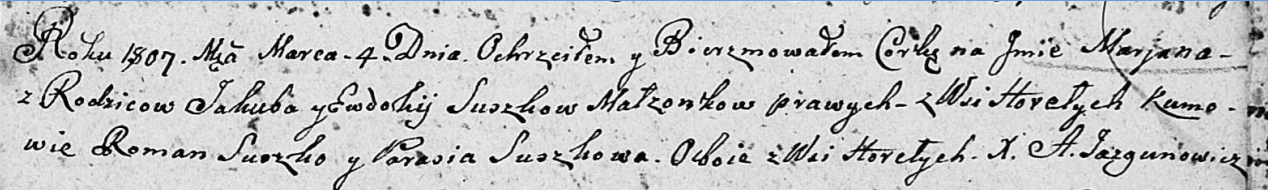 Roku 1807. Mca Marca. 4. Dnia. Ochrzciłem y Bierzmowałem Corkę na Jmie Marjana -
z Rodzicow Jakuba y Ewdokij Suszkow Małzonkow prawych - z Wsi Horełych Kumo -
wie Roman Suszko y Parasia Suszkowa. Oboie z Wsi Horełych. X. A. Jazgunowicz